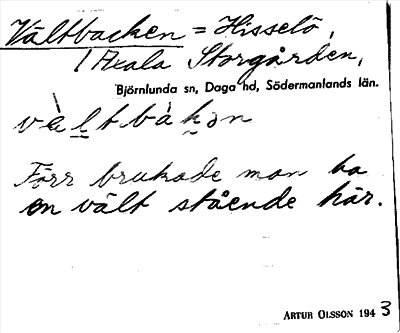 Vältbacken = Hisselö,
/ Axala Storgården,
Björnlunda sn, Daga hd, Södermanlands län.
và̀ltbàkən
Förr brukade man ha
en vält stående här.
ARTUR OLSSON 1943